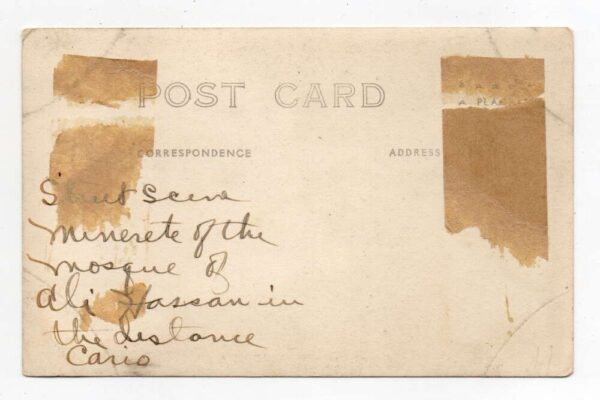 POST CARD
A PLA
CORRESPONDENCE
ADDRESS
Street Scene
Minerete of the
mosque of
Ali Hassan in
the distance
Cario